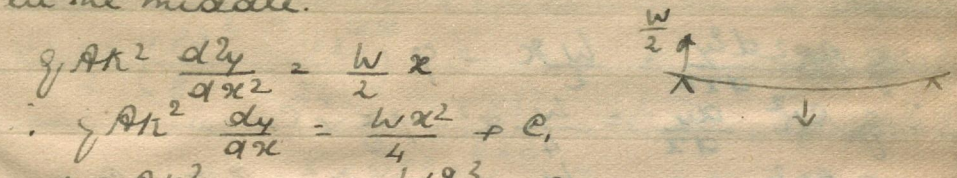 the middle.
q AK² d²y/dx² = W/2 x
W/2
∴ q AK² dy/dx = Wx²/4 + C₁